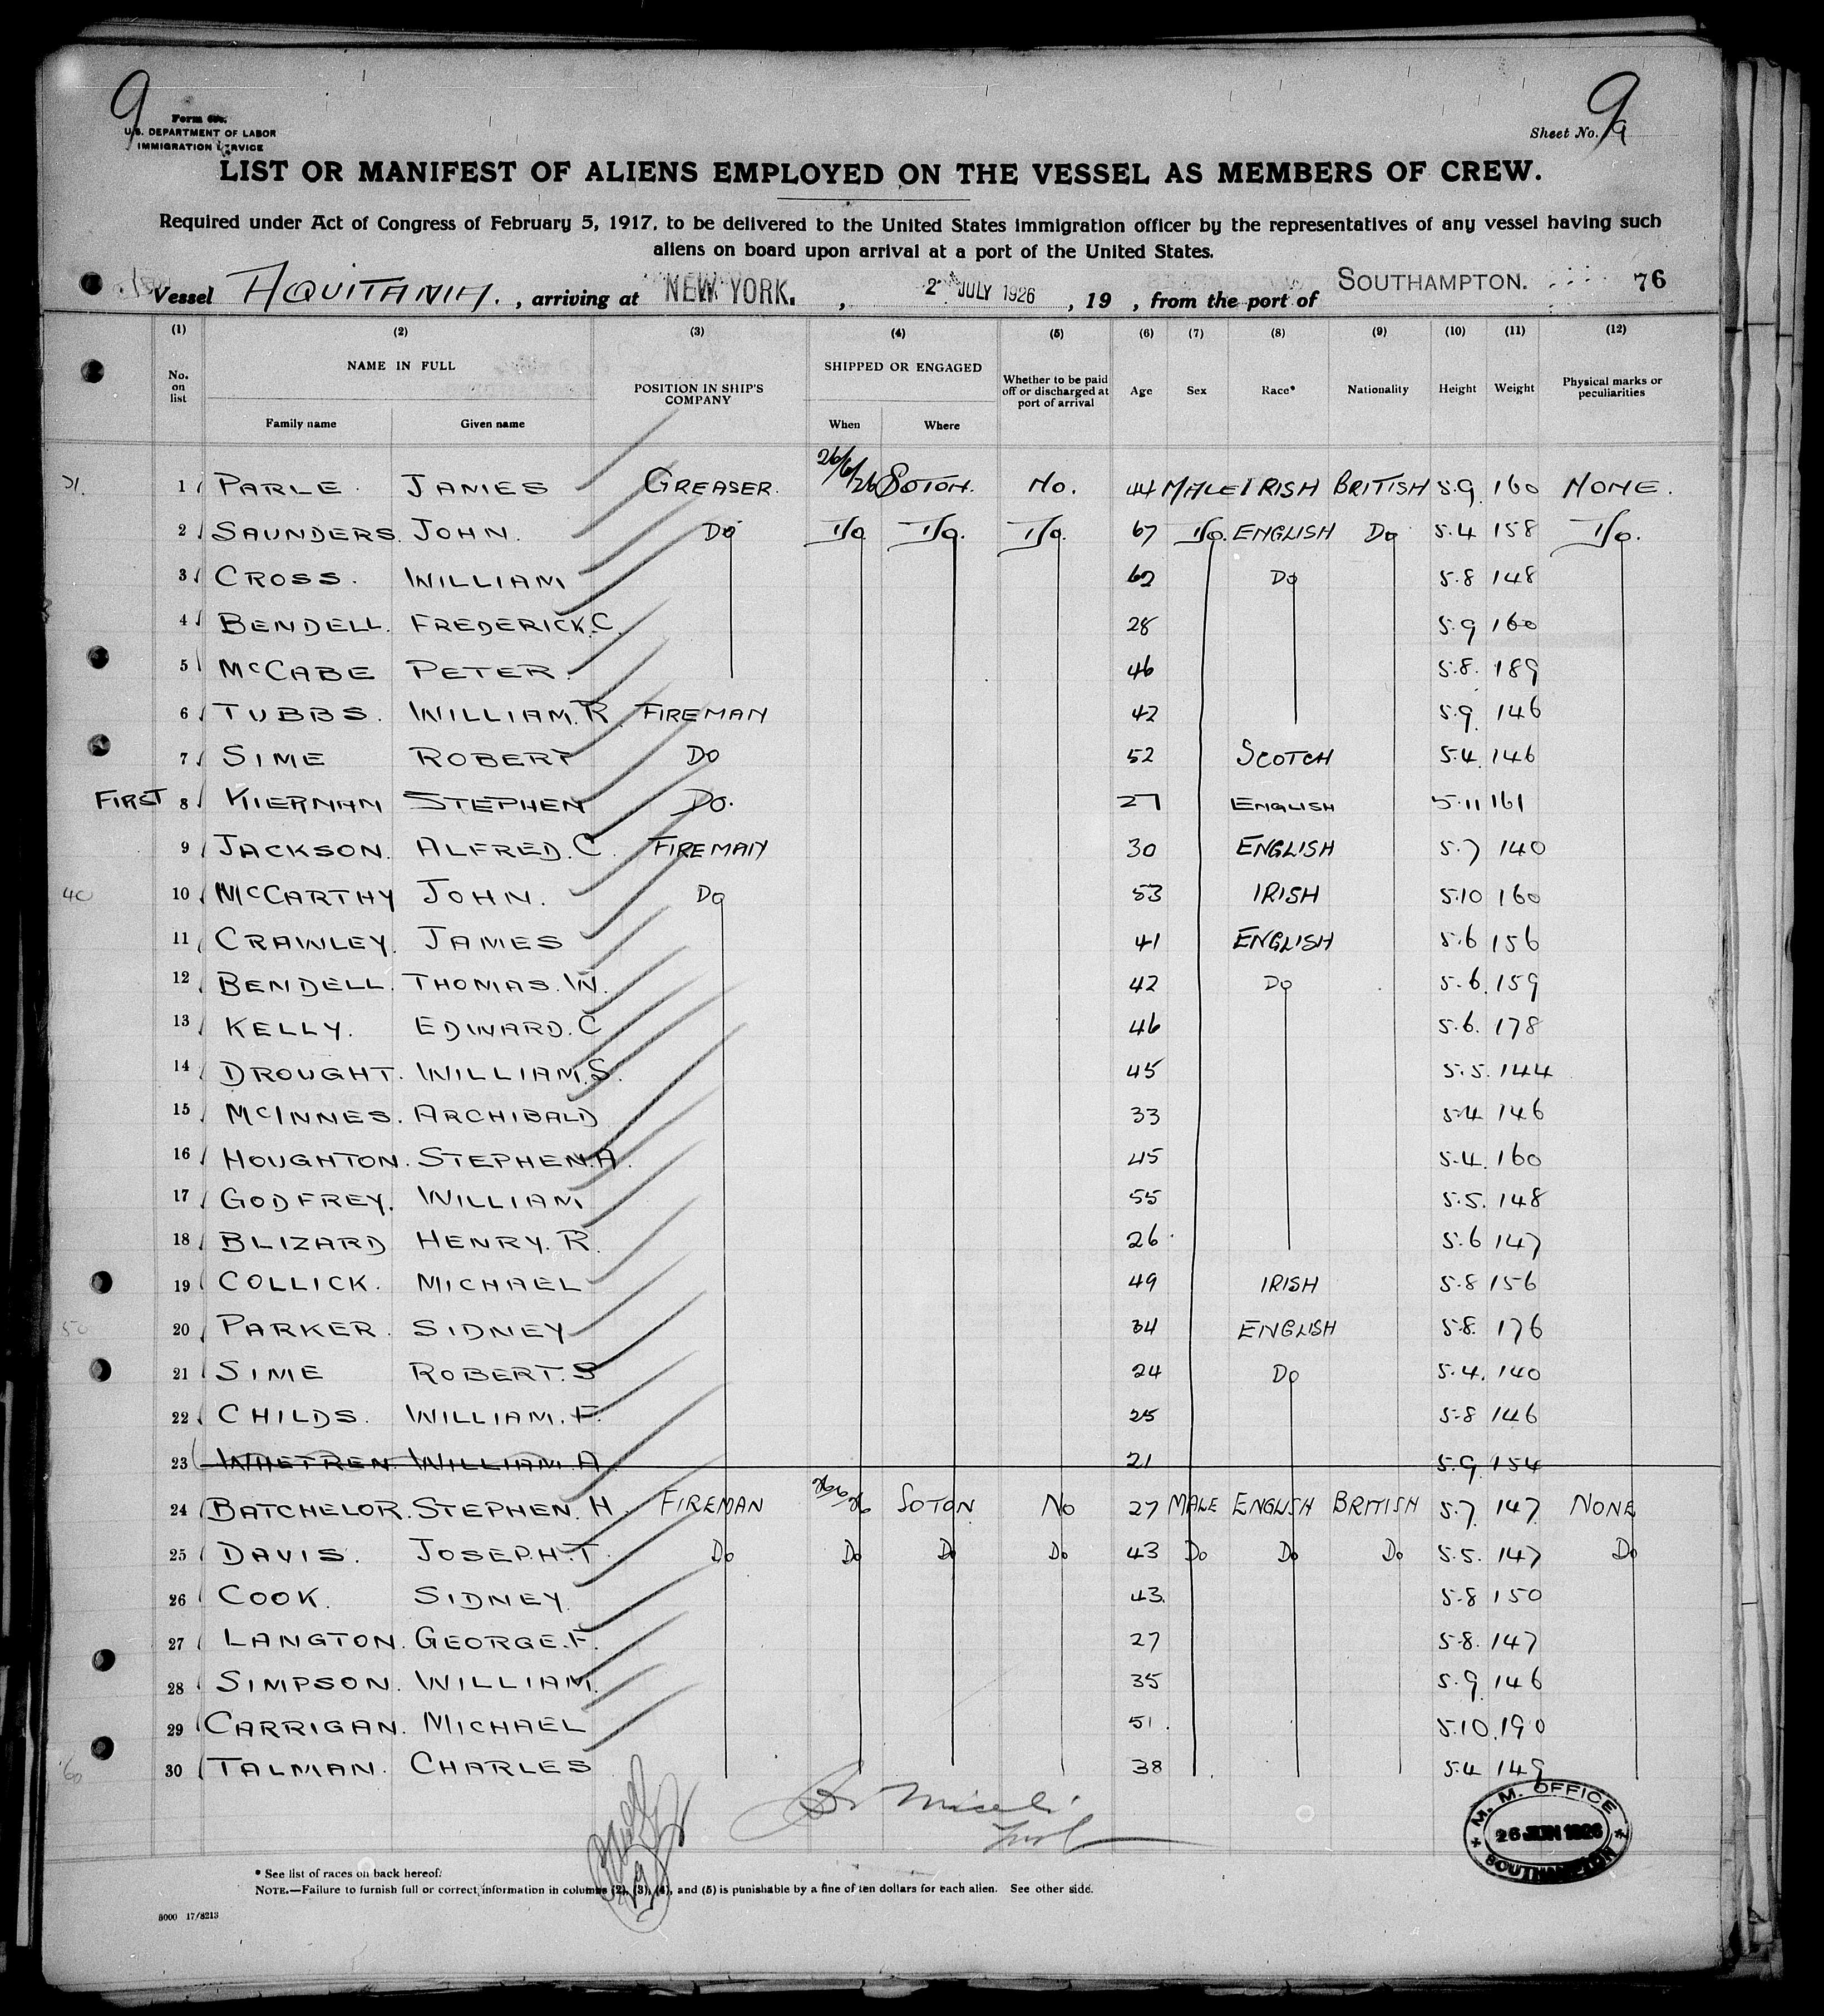 9
Sheet No. 9a
U.S. DEPARTMENT OF LABOR
IMMIGRATION SERVICE
LIST OR MANIFEST OF ALIENS EMPLOYED ON THE VESSEL AS MEMBERS OF CREW.
Required under Act of Congress of February 5, 1917, to be delivered to the United States immigration officer by the representatives of any vessel having such
aliens on board upon arrival at a port of the United States.
Vessel AQUITANIA. , arriving at NEW YORK. , 2 JULY 1926 , 19 , from the port of SOUTHAMPTON. 76
(1) (2) (3) (4) (5) (6) (7) (8) (9) (10) (11) (12)
No. on list NAME IN FULL Family name Given name POSITION IN SHIP'S COMPANY SHIPPED OR ENGAGED When Where Whether to be paid off or discharged at port of arrival Age Sex Race* Nationality Height Weight Physical marks or peculiarities
31. 1 PARLE. JAMES GREASER. 26/6/26 SOTON. NO. 44 MALE IRISH BRITISH 5.9 160 NONE.
2 SAUNDERS. JOHN. DO D/O D/O. D/O. 67 D/O. ENGLISH DO 5.4 158 D/O.
3 CROSS. WILLIAM 62 DO 5.8 148
4 BENDELL. FREDERICK.C. 28 5.9 160
5 McCABE PETER. 46 5.8. 189
6 TUBBS. WILLIAM.R. FIREMAN 42 5.9. 146
7 SIME ROBERT DO 52 SCOTCH 5.4. 146
FIRST 8 KIERNAN STEPHEN DO. 27 ENGLISH 5.11 161
9 JACKSON. ALFRED.C. FIREMAN 30 ENGLISH 5.7 140
40 10 McCARTHY JOHN. DO 53 IRISH 5.10 160
11 CRAWLEY. JAMES 41 ENGLISH 5.6 156
12 BENDELL. THOMAS.W. 42 DO 5.6. 159
13 KELLY. EDWARD.C 46 5.6. 178
14 DROUGHT. WILLIAM.S. 45 5.5. 144
15 McINNES. ARCHIBALD 33 5.4 146
16 HOUGHTON. STEPHEN.A. 45 5.4. 160
17 GODFREY. WILLIAM 55 5.5. 148
18 BLIZARD HENRY.R. 26 5.6 147
19 COLLICK. MICHAEL 49 IRISH 5.8 156
50 20 PARKER. SIDNEY 34 ENGLISH 5.8. 176
21 SIME ROBERT.S 24 DO 5.4. 140
22 CHILDS. WILLIAM.F. 25 5.8 146
23 WHETREN. WILLIAM.A. 21 5.9 154
24 BATCHELOR. STEPHEN.H. FIREMAN 26/6/26 SOTON NO 27 MALE ENGLISH BRITISH 5.7. 147 NONE
25 DAVIS. JOSEPH.T. DO DO DO DO 43 DO DO DO 5.5. 147 DO
26 COOK. SIDNEY. 43. 5.8 150
27 LANGTON. GEORGE.F. 27 5.8. 147
28 SIMPSON. WILLIAM. 35 5.9. 146
29 CARRIGAN. MICHAEL 51. 5.10. 190
60 30 TALMAN. CHARLES 38 5.4 149
M. M. OFFICE
26 JUN 1926
SOUTHAMPTON
* See list of races on back hereof.
NOTE.—Failure to furnish full or correct information in columns (2), (3), (4), and (5) is punishable by a fine of ten dollars for each alien. See other side.
8000 17/8213